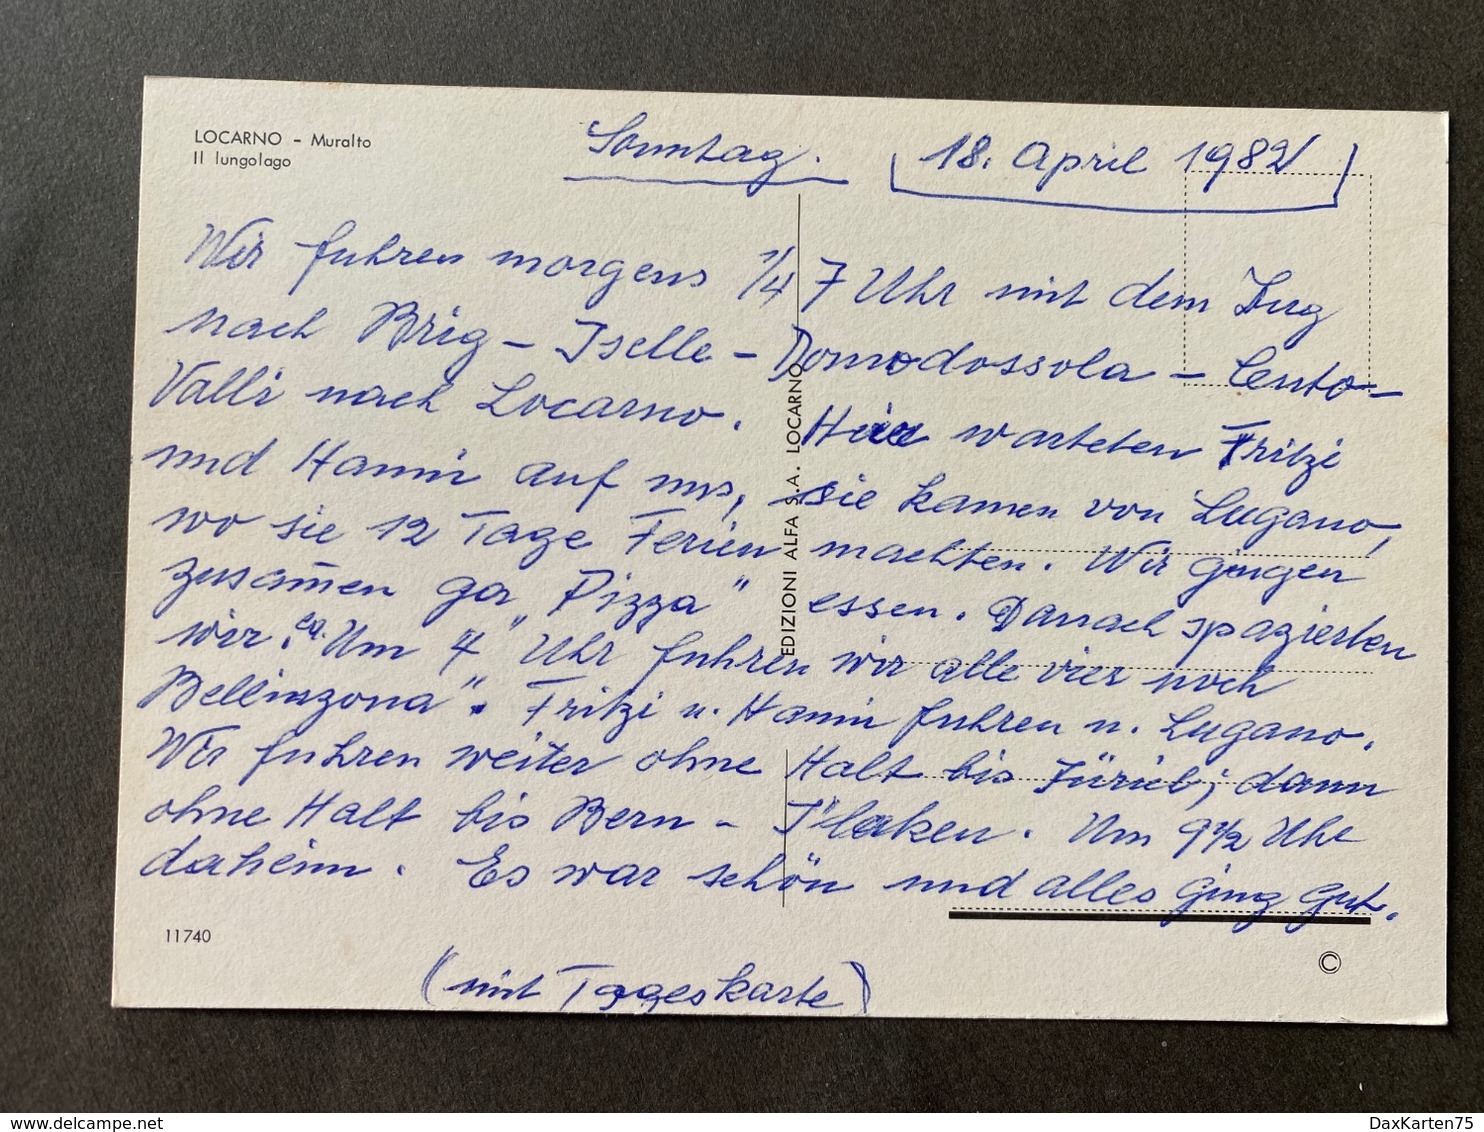 LOCARNO – Muralto
Il lungolago
Sonntag. 18. April 1982
Wir fuhren morgens 1/4 7 Uhr mit dem Zug
nach Brig – Iselle – Domodossola – Cento-
Valli nach Locarno. Hier warteten Fritzi
und Hanni auf uns, sie kamen von Lugano,
wo sie 12 Tage Ferien machten. Wir gingen
zusam̅en "Pizza" essen. Danach spazierten
wir. ca. Um 4 Uhr fuhren wir alle vier noch
Bellinzona". Fritzi u. Hanni fuhren n. Lugano.
Wir fuhren weiter ohne Halt bis Zürich, dann
ohne Halt bis Bern – I'laken. Um 9 1/2 Uhr
daheim. Es war schön und alles ging gut.
(mit Tageskarte)
EDIZIONI ALFA S.A. LOCARNO
11740
©
DaxKarten75